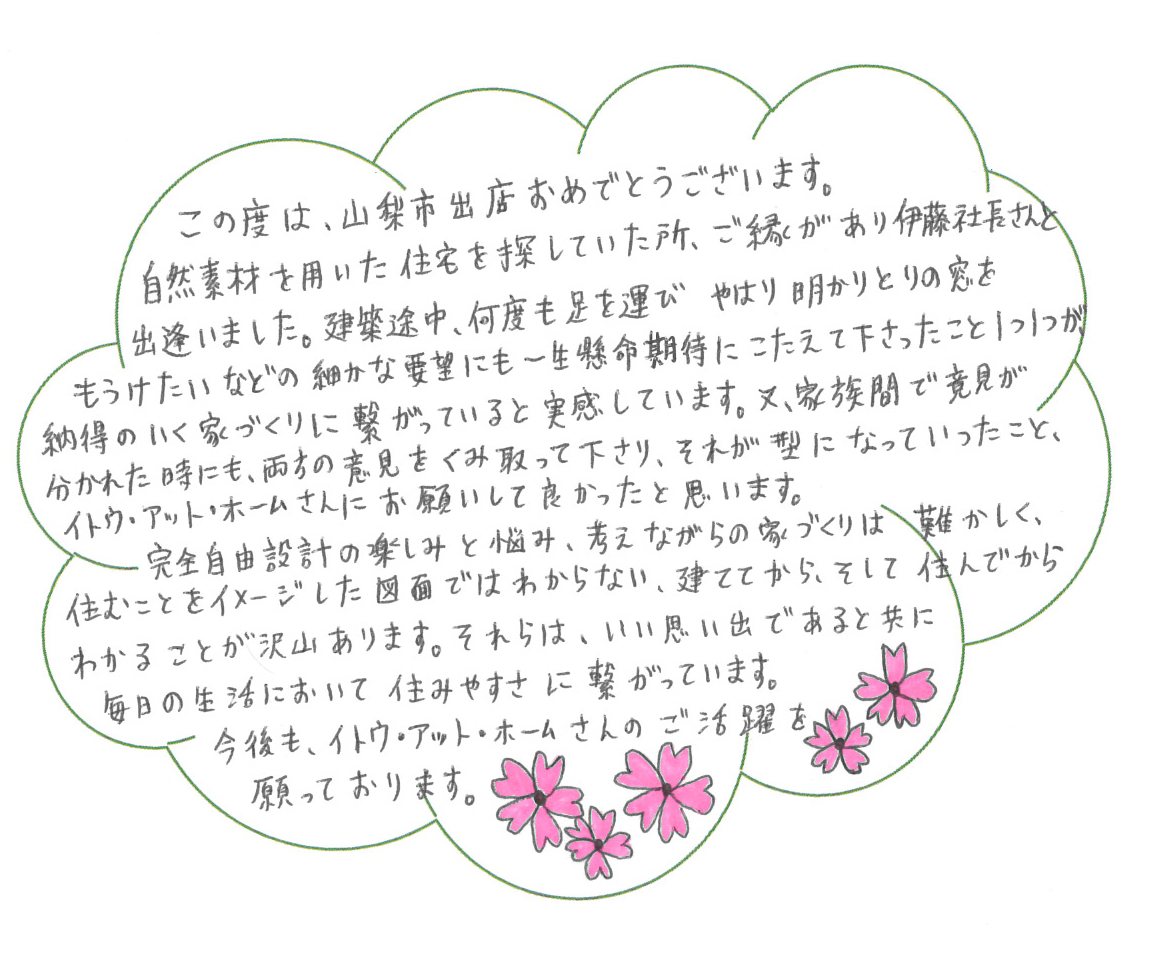 この度は、山梨市出店おめでとうございます。
自然素材を用いた住宅を探していた所、ご縁があり伊藤社長さんと
出逢いました。建築途中、何度も足を運び やはり明かりとりの窓を
もうけたいなどの細かな要望にも一生懸命期待にこたえて下さったこと1つ1つが、
納得のいく家づくりに繋がっていると実感しています。又、家族間で意見が
分かれた時にも、両方の意見をくみ取って下さり、それが型になっていったこと、
イトウ・アット・ホームさんにお願いして良かったと思います。
完全自由設計の楽しみと悩み、考えながらの家づくりは 難かしく、
住むことをイメージした図面ではわからない、建ててから、そして住んでから
わかることが沢山あります。それらは、いい思い出であると共に
毎日の生活において住みやすさに繋がっています。
今後も、イトウ・アット・ホームさんのご活躍を
願っております。